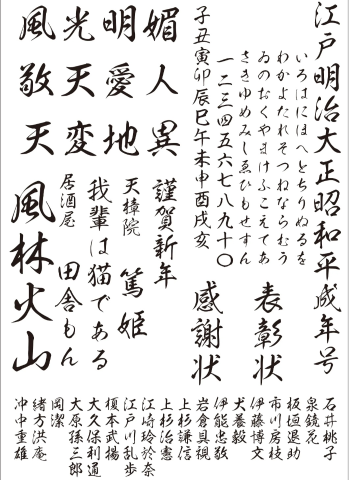 江戸明治大正昭和平成年号
いろはにほへとちりぬるを
わかよたれそつねならむう
ゐのおくやまけふこえてあ
さきゆめみしゑひもせすん
一二三四五六七八九十〇
子丑寅卯辰巳午未申酉戌亥
表彰状
感謝状
媚人異
明愛地
光天変
風敬天
謹賀新年
天樟院
篤姫
我輩は猫である
居酒屋
田舎もん
風林火山
石井桃子
泉鏡花
板垣退助
市川房枝
伊藤博文
犬養毅
伊能忠敬
岩倉具視
上杉謙信
上杉治憲
江崎玲於奈
江戸川乱歩
榎本武揚
大久保利通
大原孫三郎
岡潔
緒方洪庵
冲中重雄